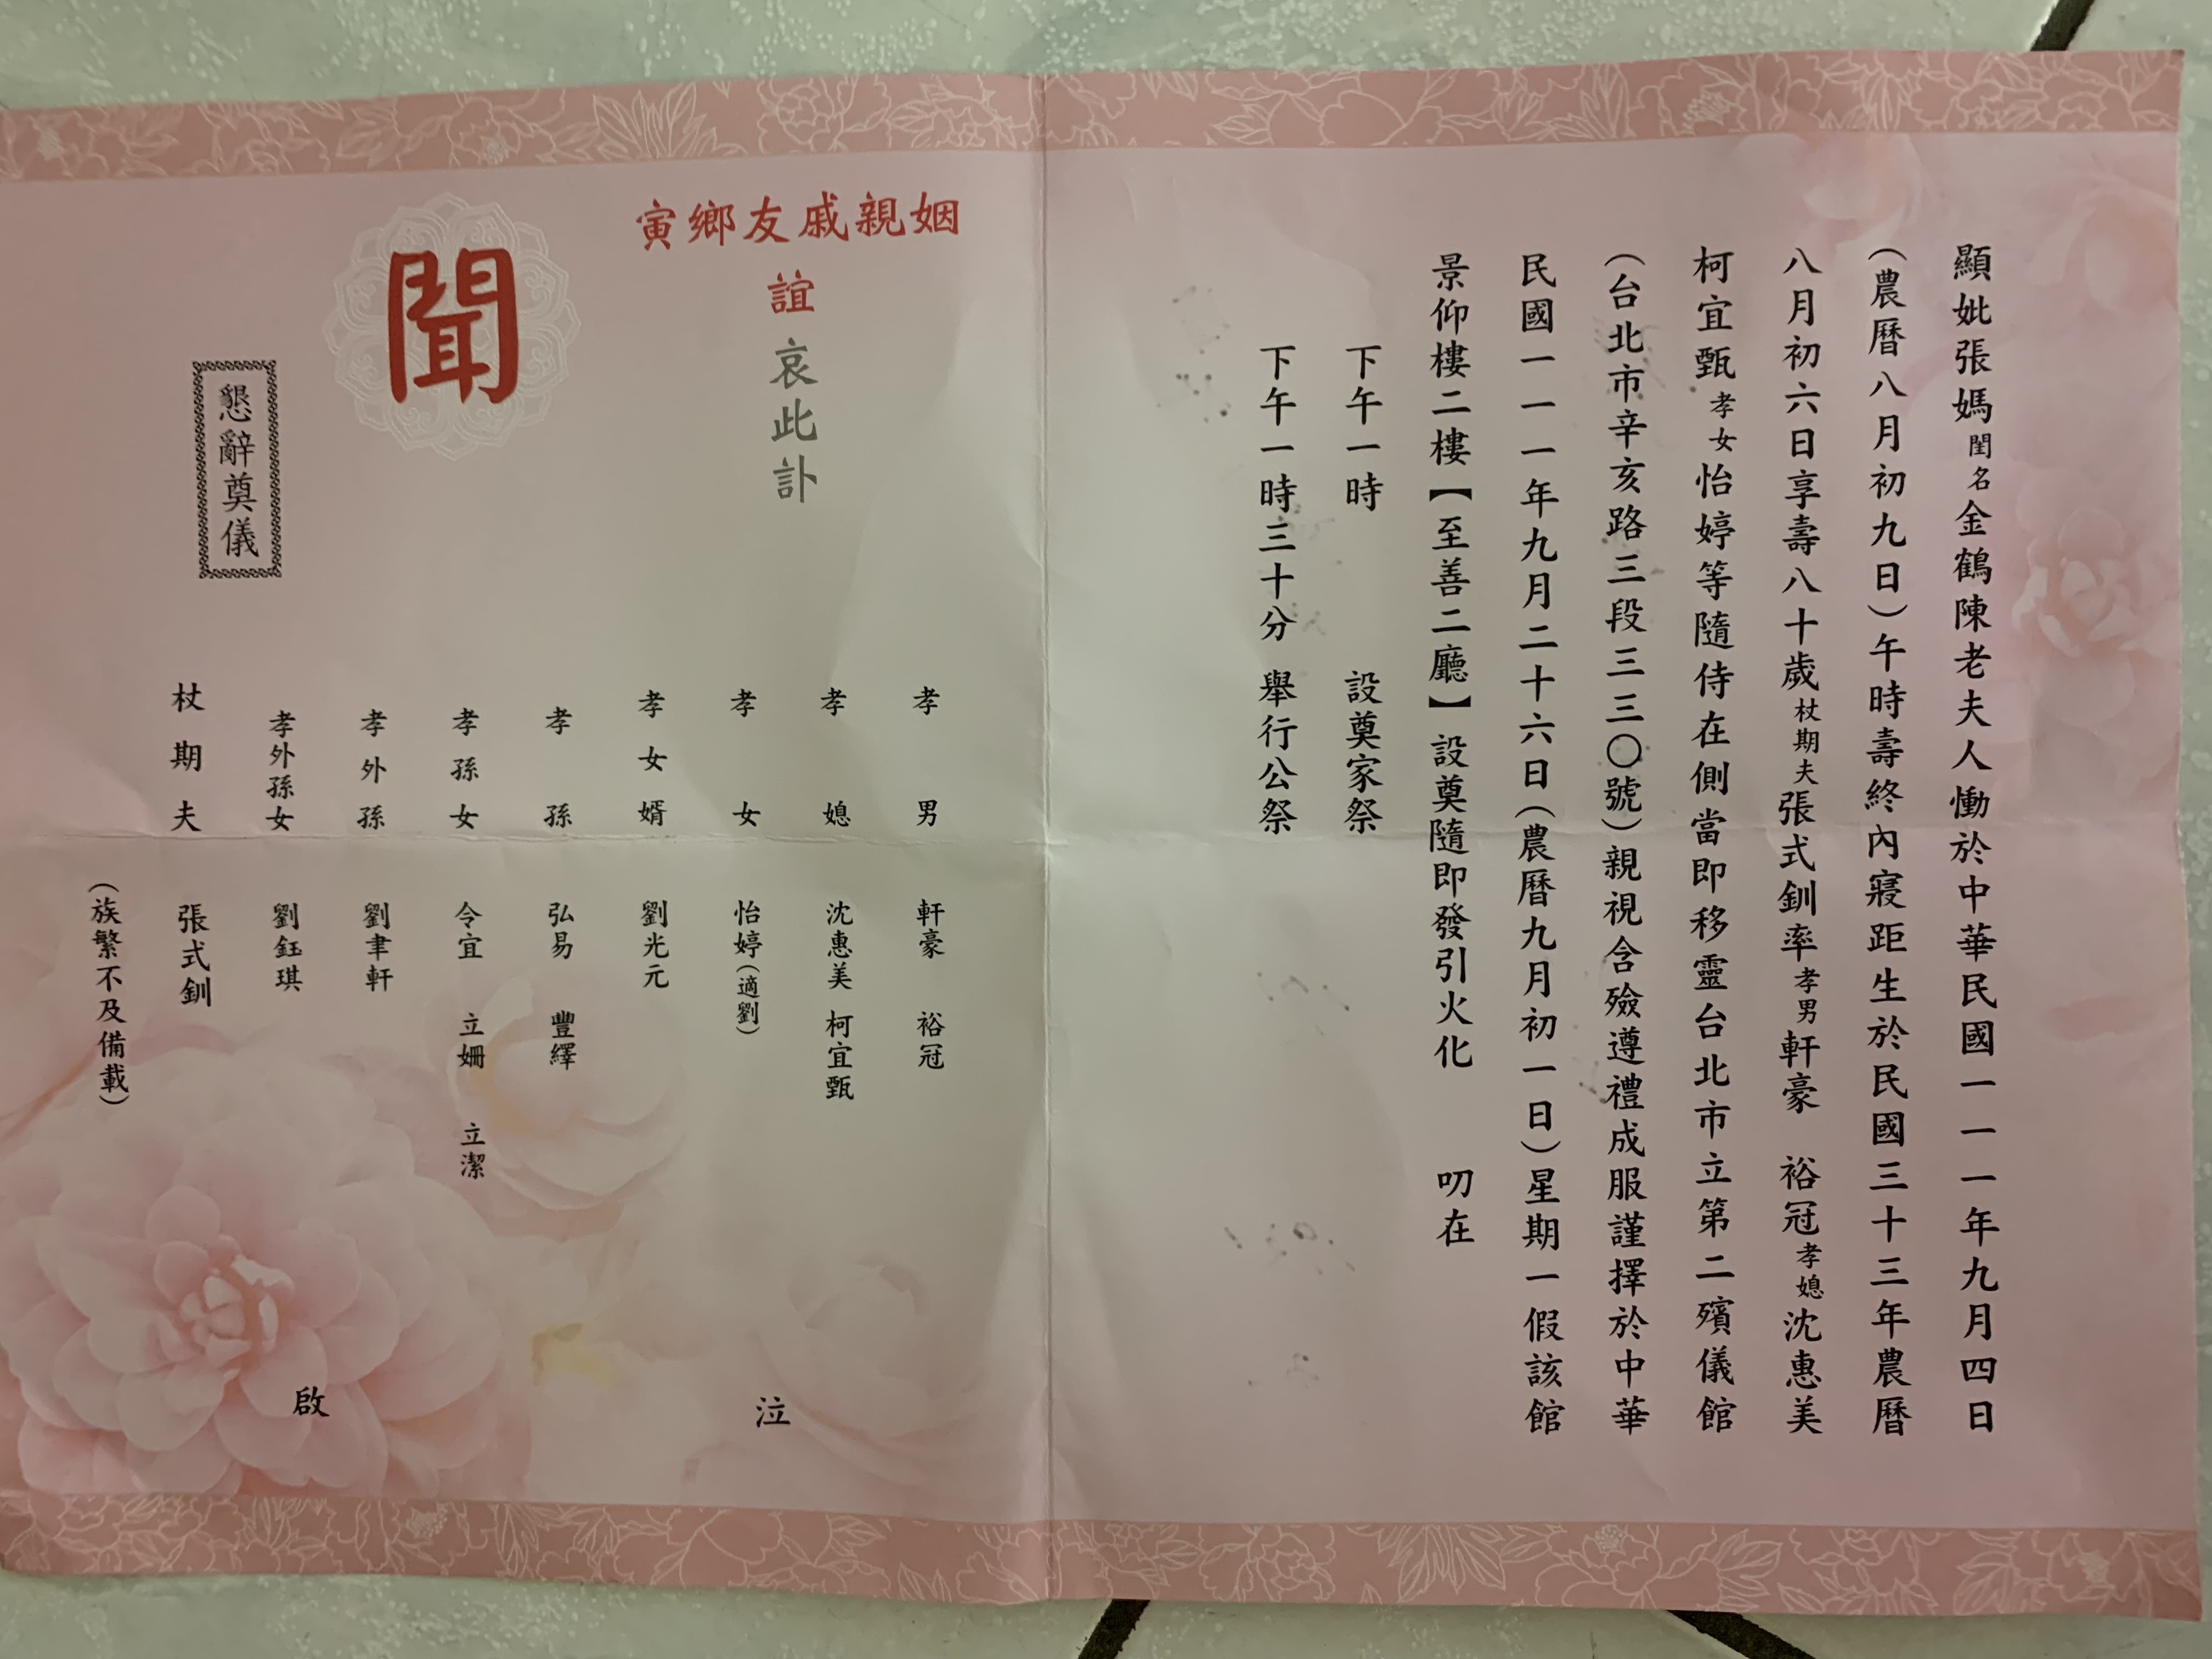 顯妣張媽閨名金鶴陳老夫人慟於中華民國一一一年九月四日
（農曆八月初九日）午時壽終內寢距生於民國三十三年農曆
八月初六日享壽八十歲杖期夫張式釧率孝男軒豪 裕冠孝媳沈惠美
柯宜甄孝女怡婷等隨侍在側當即移靈台北市立第二殯儀館
（台北市辛亥路三段三三〇號）親視含殮遵禮成服謹擇於中華
民國一一一年九月二十六日（農曆九月初一日）星期一假該館
景仰樓二樓【至善二廳】設奠隨即發引火化 叨在
下午一時 設奠家祭
下午一時三十分 舉行公祭
姻親戚友鄉寅
誼 哀此訃
聞
懇辭奠儀
孝男 軒豪 裕冠
孝媳 沈惠美 柯宜甄
孝女 怡婷（適劉）
孝女婿 劉光元
孝孫 弘易 豐繹
孝孫女 令宜 立姍 立潔
孝外孫 劉聿軒
孝外孫女 劉鈺琪
杖期夫 張式釧
（族繁不及備載）
泣
啟